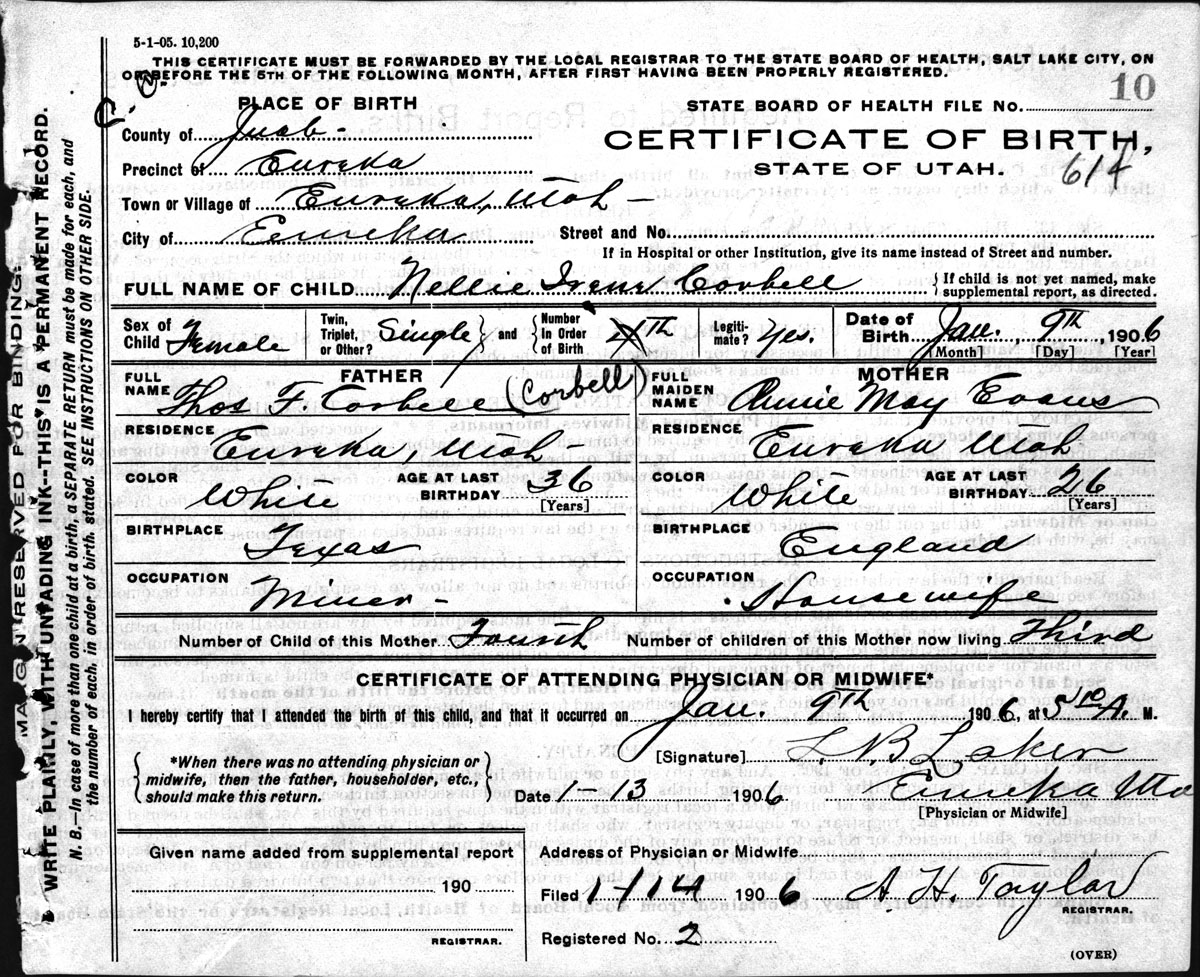 5-1-05. 10,200
THIS CERTIFICATE MUST BE FORWARDED BY THE LOCAL REGISTRAR TO THE STATE BOARD OF HEALTH, SALT LAKE CITY, ON
OR BEFORE THE 5TH OF THE FOLLOWING MONTH, AFTER FIRST HAVING BEEN PROPERLY REGISTERED.
10
PLACE OF BIRTH
STATE BOARD OF HEALTH FILE No.
County of Juab -
CERTIFICATE OF BIRTH,
STATE OF UTAH.
614
Precinct of Eureka
Town or Village of Eureka, Utah -
City of Eureka Street and No.
If in Hospital or other Institution, give its name instead of Street and number.
FULL NAME OF CHILD Nellie Irene Corbell { If child is not yet named, make supplemental report, as directed.
Sex of Child Female Twin, Triplet, or Other? Single } and { Number In Order of Birth 4th Legiti- mate? Yes. Date of Birth Jan. 9th, 1906
[Month] [Day] [Year]
FATHER MOTHER
FULL NAME Thos F. Corbell (Corbell) FULL MAIDEN NAME Annie May Evans
RESIDENCE Eureka, Utah RESIDENCE Eureka Utah
COLOR White AGE AT LAST BIRTHDAY 36 [Years] COLOR White AGE AT LAST BIRTHDAY 26 [Years]
BIRTHPLACE Texas BIRTHPLACE England
OCCUPATION Miner - OCCUPATION Housewife
Number of Child of this Mother Fourth Number of children of this Mother now living Third
CERTIFICATE OF ATTENDING PHYSICIAN OR MIDWIFE*
I hereby certify that I attended the birth of this child, and that it occurred on Jan. 9th 1906, at 5 A. M.
{ *When there was no attending physician or midwife, then the father, householder, etc., should make this return. }
[Signature] L. B. Laker
Date 1-13 1906 Eureka
[Physician or Midwife]
Given name added from supplemental report
190
REGISTRAR.
Address of Physician or Midwife
Filed 1-14 1906 A. H. Taylor
REGISTRAR.
Registered No. 2
(OVER)
MARGIN RESERVED FOR BINDING.
WRITE PLAINLY, WITH UNFADING INK--THIS IS A PERMANENT RECORD.
N. B.—In case of more than one child at a birth, a SEPARATE RETURN must be made for each, and
the number of each, in order of birth, stated. SEE INSTRUCTIONS ON OTHER SIDE.